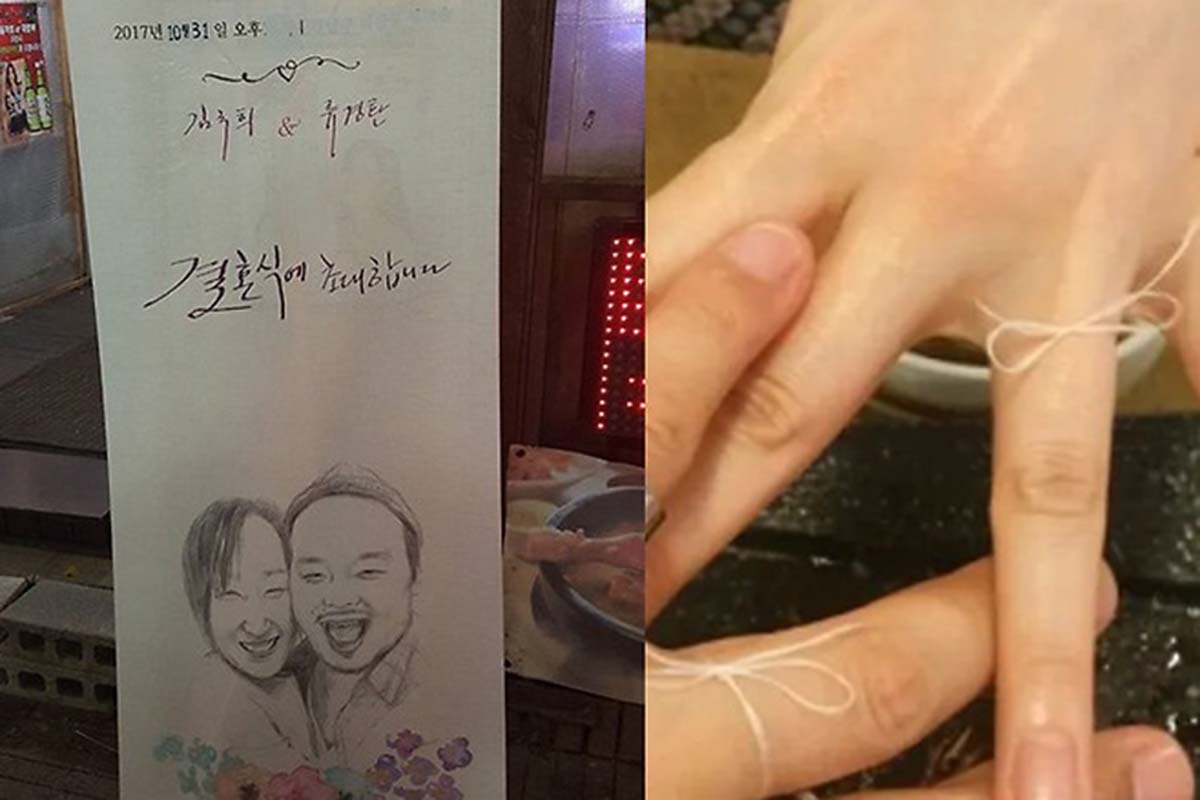 2017년 10월 31일 오후
김국희 & 류경환
결혼식에 초대합니다